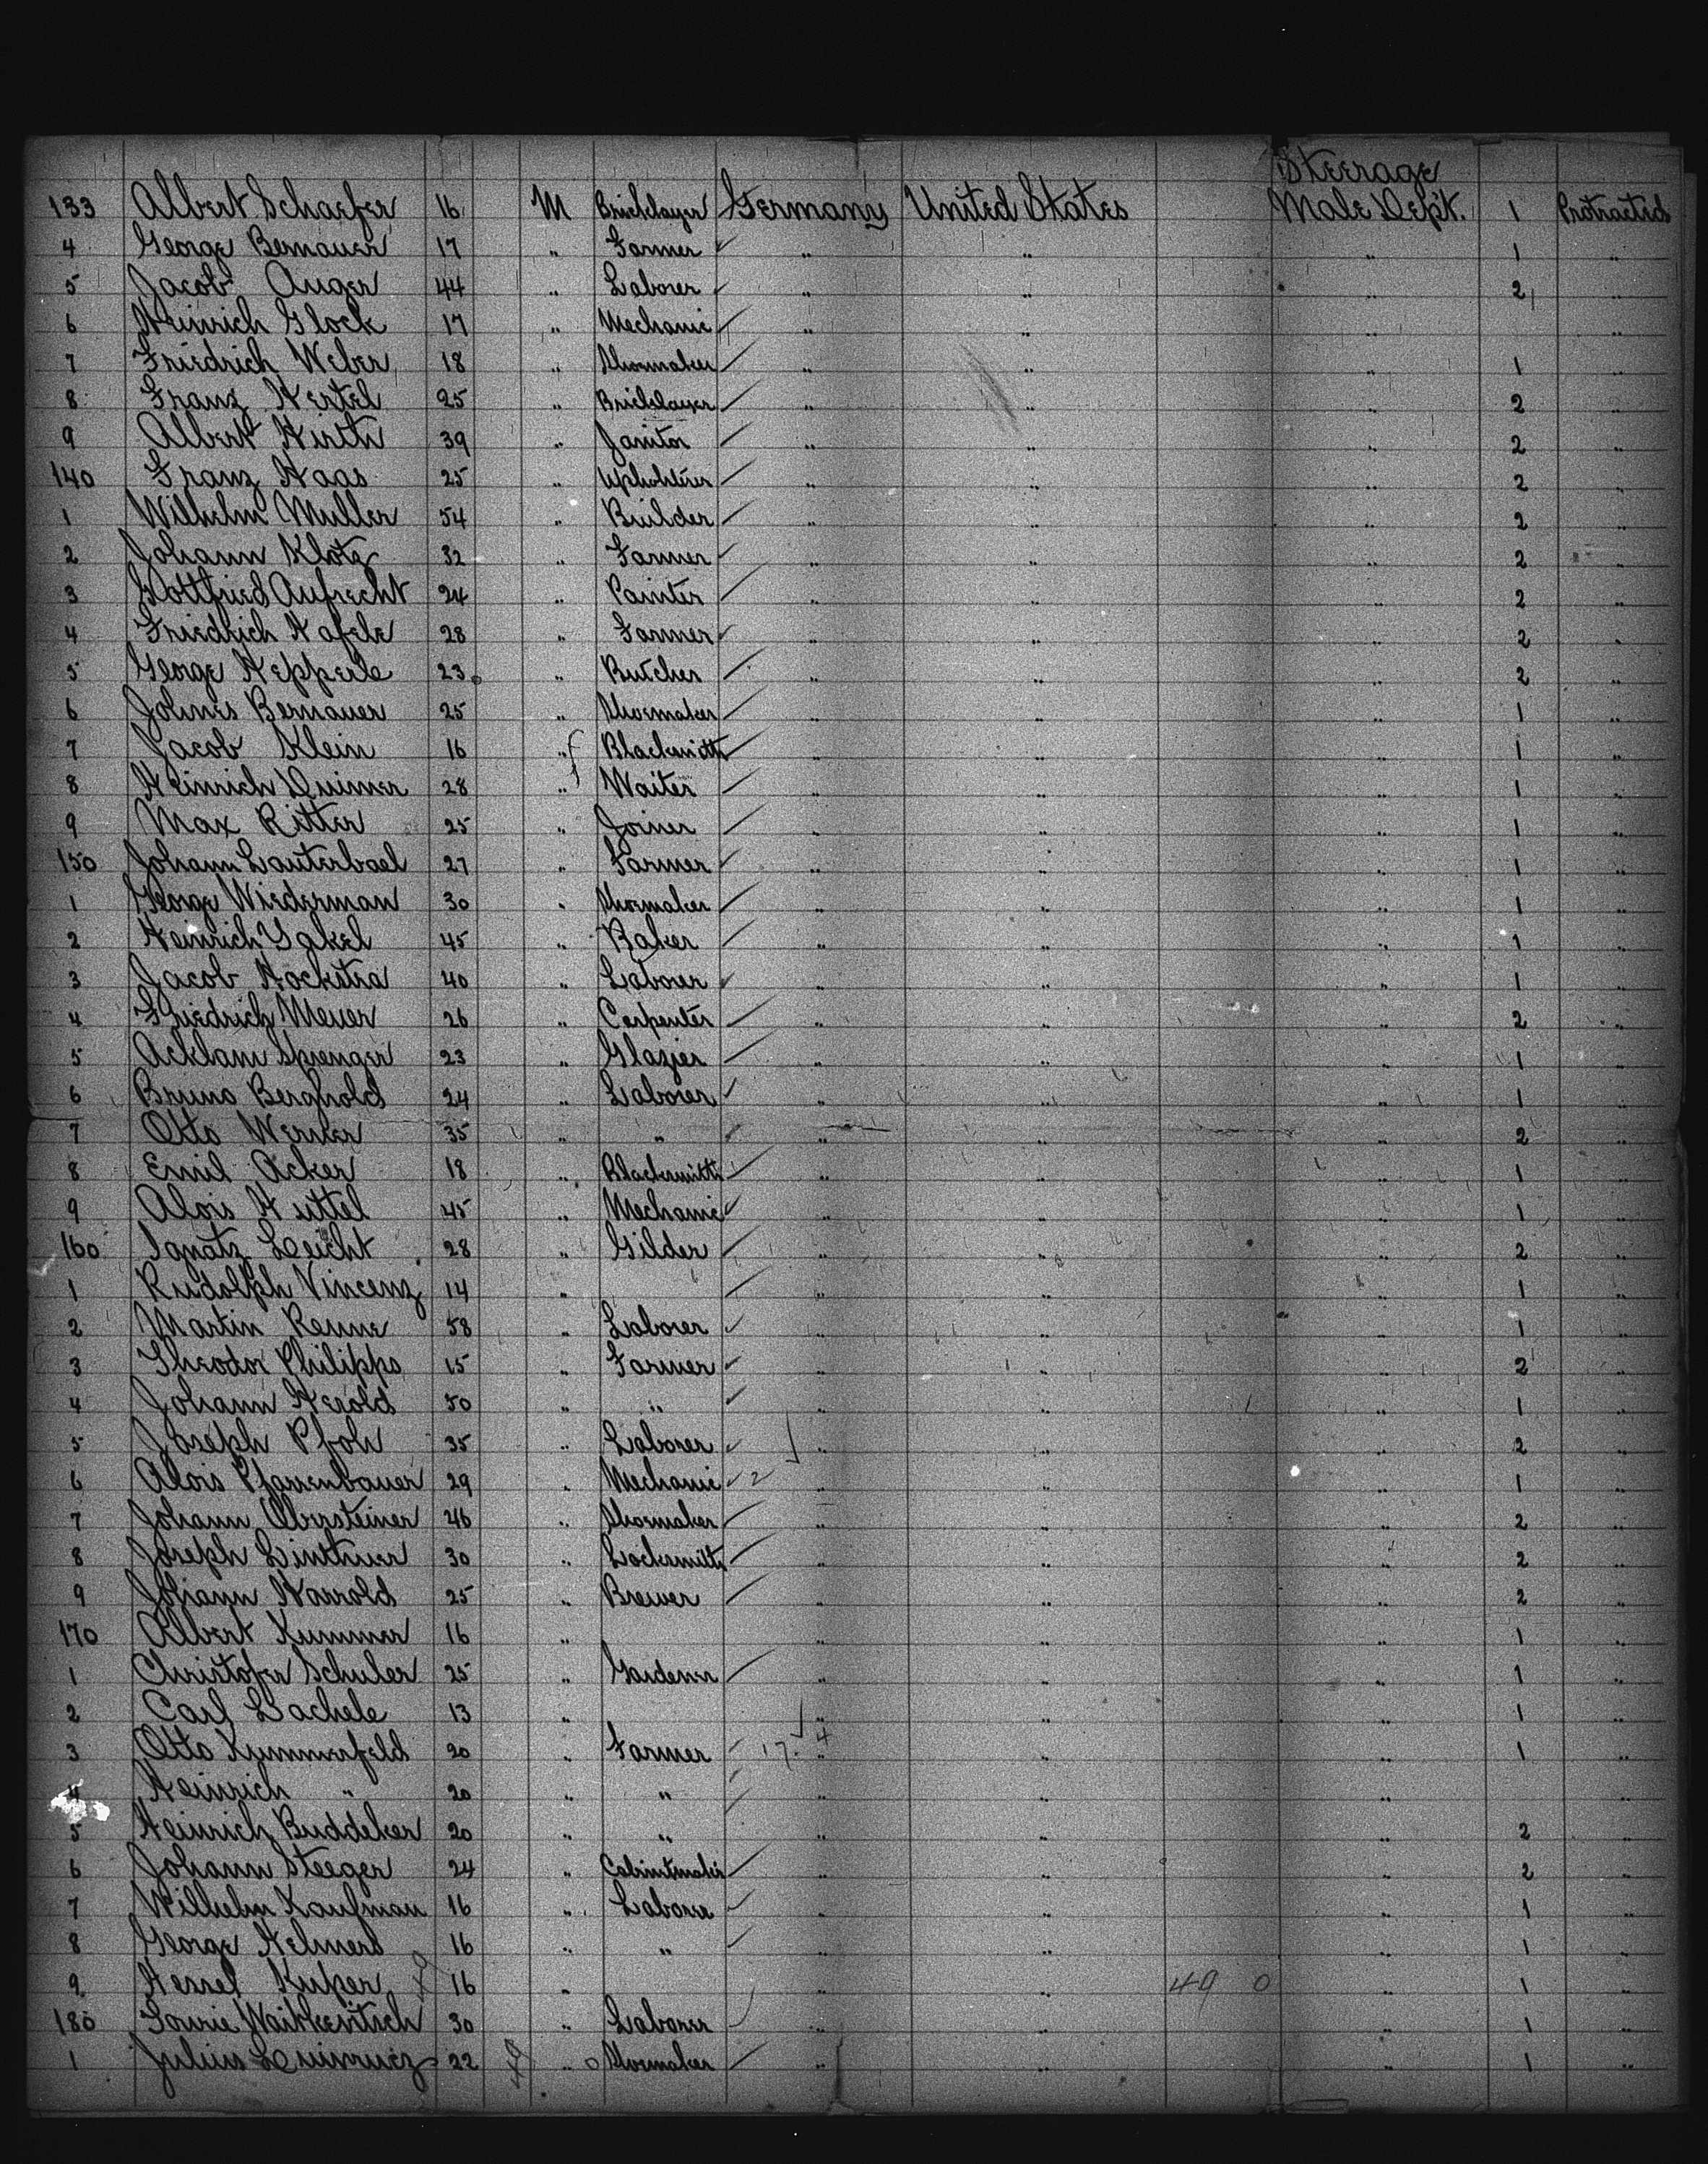 Steerage
133 Albert Schaefer 16 M Bricklayer Germany United States Male Dept. 1 Protracted
4 George Bernauer 17 " Farmer " " " 1 "
5 Jacob Auger 44 " Laborer " " " 2 "
6 Heinrich Glock 17 " Mechanic " " " "
7 Friedrich Weber 18 " Shoemaker " " " 1 "
8 Franz Hertel 25 " Bricklayer " " " 2 "
9 Albert Hirth 39 " Janitor " " " 2 "
140 Franz Haas 25 " Upholsterer " " " 2 "
1 Wilhelm Muller 54 " Builder " " " 2 "
2 Johann Klotz 32 " Farmer " " " 2 "
3 Gottfried Aufrecht 24 " Painter " " " 2 "
4 Friedrich Hafele 28 " Farmer " " " 2 "
5 George Hepperle 23 " Butcher " " " 2 "
6 Johnes Bernauer 25 " Shoemaker " " " 1 "
7 Jacob Klein 16 " Blacksmith " " " 1 "
8 Heinrich 28 " Waiter " " " 1 "
9 Max Ritter 25 " Joiner " " " 1 "
150 Johann Lauterbael 27 " Farmer " " " 1 "
1 George Wiederman 30 " Shoemaker " " " 1 "
2 Heinrich 45 " Baker " " " 1 "
3 Jacob Hockstra 40 " Laborer " " " 1 "
4 Friedrich Meuer 26 " Carpenter " " " 2 "
5 Acklam Sprenger 23 " Glazier " " " 1 "
6 Bruno Berghold 24 " Laborer " " " 1 "
7 Otto Werner 35 " " " " " 2 "
8 Emil Acker 18 " Blacksmith " " " 1 "
9 Alois Huttel 45 " Mechanic " " " 1 "
160 Ignatz Leicht 28 " Gilder " " " 2 "
1 Rudolph Vincenz 14 " " " " 1 "
2 Martin Renne 58 " Laborer " " " 1 "
3 Theodor Philipps 15 " Farmer " " " 2 "
4 Johann Herold 50 " " " " " 1 "
5 Joseph Pfoh 35 " Laborer " " " 2 "
6 Alois Pfarrenbauer 29 " Mechanic 2 " " " 1 "
7 Johann Obersteiner 46 " Shoemaker " " " 2 "
8 Joseph Linthner 30 " Locksmith " " " 2 "
9 Johann Harrold 25 " Brewer " " " 2 "
170 Albert Kummer 16 " " " " 1 "
1 Christofer Schuler 25 " Gardener " " " 1 "
2 Carl Lachele 13 " " " " 1 "
3 Otto Kummerfeld 20 " Farmer 17 4 " " " 1 "
4 Heinrich " 20 " " " " " "
5 Heinrich Buddeker 20 " " " " " 2 "
6 Johann Steeger 24 " Cabinetmaker " " " 2 "
7 Wilhelm Kaufman 16 " Laborer " " " 1 "
8 George Helmers 16 " " " " " 1 "
9 Hessel Kuper 49 16 " " " 49 0 " 1 "
180 Waitkevitsch 30 " Laborer " " " 1 "
1 Julius 22 49 " 0 Shoemaker " " " 1 "